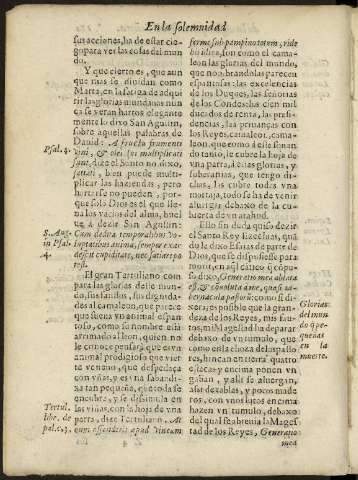 En la solemnidad
sus acciones, ha de estar cie-
go para ver las cosas del mun
do.
Y que cierto es, que aun
que mas se diuidan como
Marta, en la fatiga de adqui
rir las glorias mundanas nun
ca se veran hartos elegante
mente lo dixo San Agustin,
sobre aquellas palabras de
Dauid: A fructu frumenti
vini, & olei sui multiplicati
sunt. Aize el Santo no dixo,
satiati, bien puede multi-
plicar las haziendas, pero
hartarse no pueden, por-
que solo Dios es el que lle-
na los vacios del alma, buel
ue a dezir San Agustin:
Cum dedita temporalibus vo-
luptatibus anima, semper exar-
descit cupiditate, nec satiari po
test.
El gran Tertuliano com
para las glorias deste mun-
do, sus faustos, sus dignida-
des al camaleon, que parece
que suena vn animal espan-
toso, como su nombre està
arrimado al leon, quien no
le conoce pensarà que es vn
animal prodigioso que vier
te veneno, que despedaça
con vñas, y es vna sabandi-
xa tan pequeña, que toda se
encubre, y se dissimula en
las viñas, con la hoja de vna
parra, dize Tertuliano. At
cum offenderis apud vineam
ferme sub pampino totum, ride
bis
leon las glorias del mundo,
que nombrandolas parecen
espantosas: las excelencias
de los Duques, las señorias
de los Condes: los cien mil
ducados de renta, las presi-
dencias, las priuanças con
los Reyes, camaleo, cama-
leon, que como a el le sonan
do tanto, le cubre la hoja de
vna parra, a estas glorias, y
soberanias, que tengo di-
chas, las cubre todas vna
mortaja, todo se ha de venir
a rugir debaxo de la cu-
bierta de vn ataud.
Ello sin duda quiso dezir
el Santo Rey Ezechias, quã
do le dixo Esaias de parte de
Dios, que se dispusiesse para
morir,
so dixo, Generatio mea ablata
est, & conuoluta a me, quasi ta-
bernacula pastorũ: como si di-
xera; es possible que la gran-
deza de los Reyes, mis faus-
tos, mi Magestad ha de parar
debaxo de vn tumulo, que
como en la choza de los pasto-
res, hincan en tierra quatro
estacas, y encima ponen vn
gaban, y alli se aluergan,
assi de tablas, y pocos made
ros, con vnos lutos encima
hazen vn tumulo, debaxo
del qual se abreuia la Mages
tad de los Reyes, Generatio
mea
Psal. 4.
S. Aug.
in Psal.
4.
Tertul.
libr. de
pal. c. 3.
Glorias
del mun
do q̃ pe-
queñas
en la
muerte.